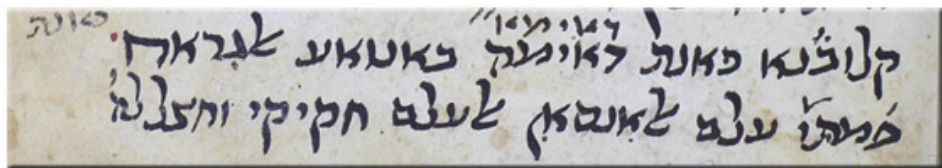 כאנת
דאימא
קלובנא כאנת דאימה באנואע אלגראח
פמתי עלם אלאנסאן אלעלם חקיקי וחצל לה